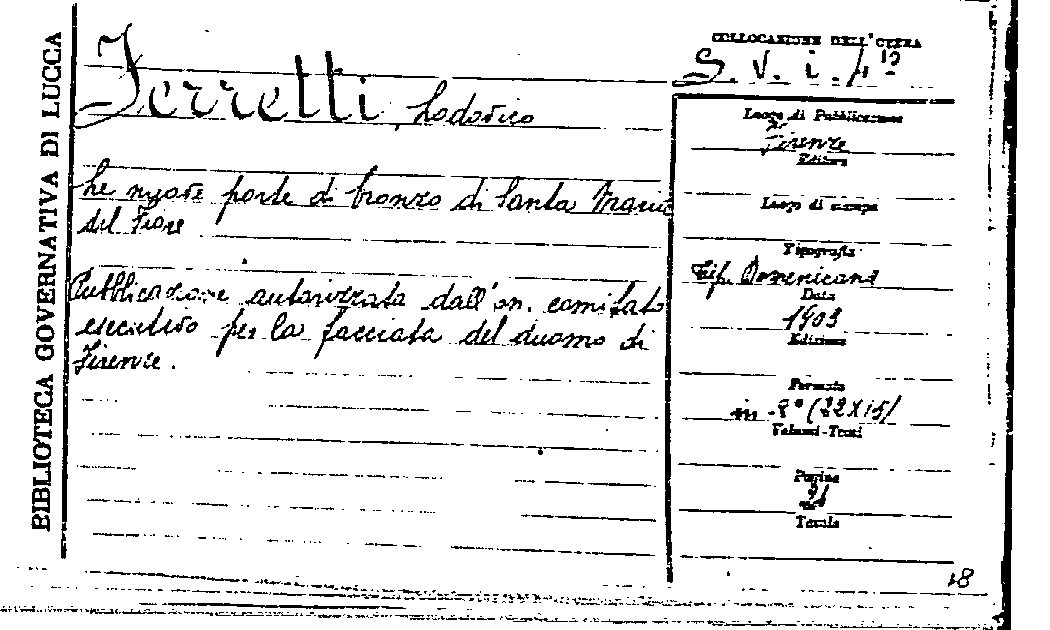 BIBLIOTECA GOVERNATIVA DI LUCCA
Ferretti, Lodovico
Le nuove porte di bronzo di Santa Maria
del Fiore
Pubblicazione autorizzata dall'on. comitato
esecutivo per la facciata del duomo di
Firenze.
COLLOCAZIONE DELL'OPERA
S. V. i.
Luogo di Pubblicazione
Firenze
Editore
Luogo di stampa
Tipografia
Tip. Domenicana
Data
1903
Edizione
Formato
in -8° (22X15)
Volumi-Tomi
Pagine
Tavole
18